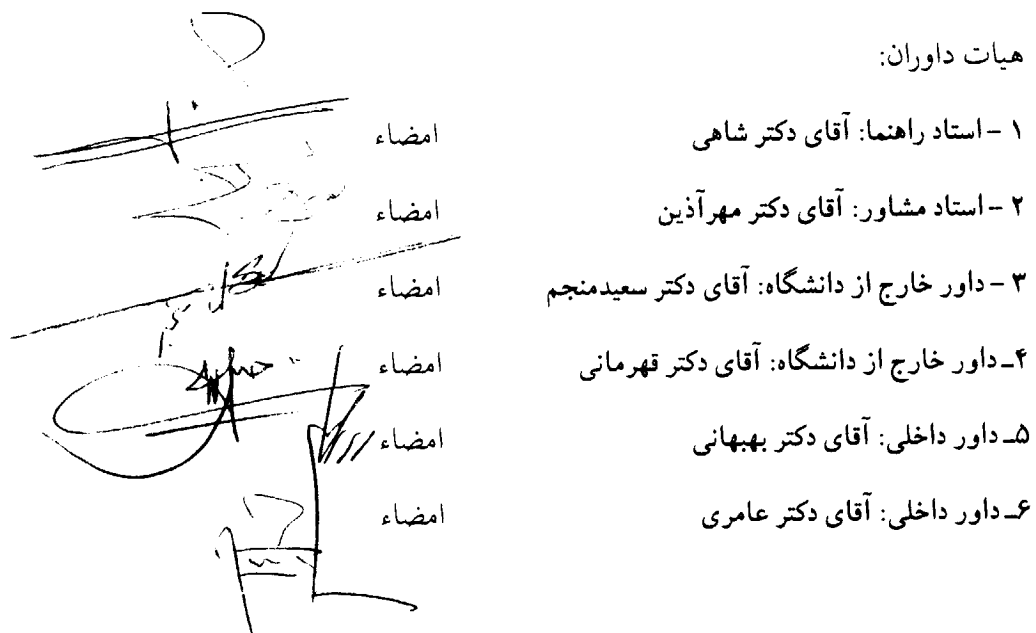 هیات داوران:
۱ - استاد راهنما: آقای دکتر شاهی امضاء
۲ - استاد مشاور: آقای دکتر مهرآذین امضاء
۳ - داور خارج از دانشگاه: آقای دکتر سعیدمنجم امضاء
۴ـ داور خارج از دانشگاه: آقای دکتر قهرمانی امضاء
۵ـ داور داخلی: آقای دکتر بهبهانی امضاء
۶ـ داور داخلی: آقای دکتر عامری امضاء